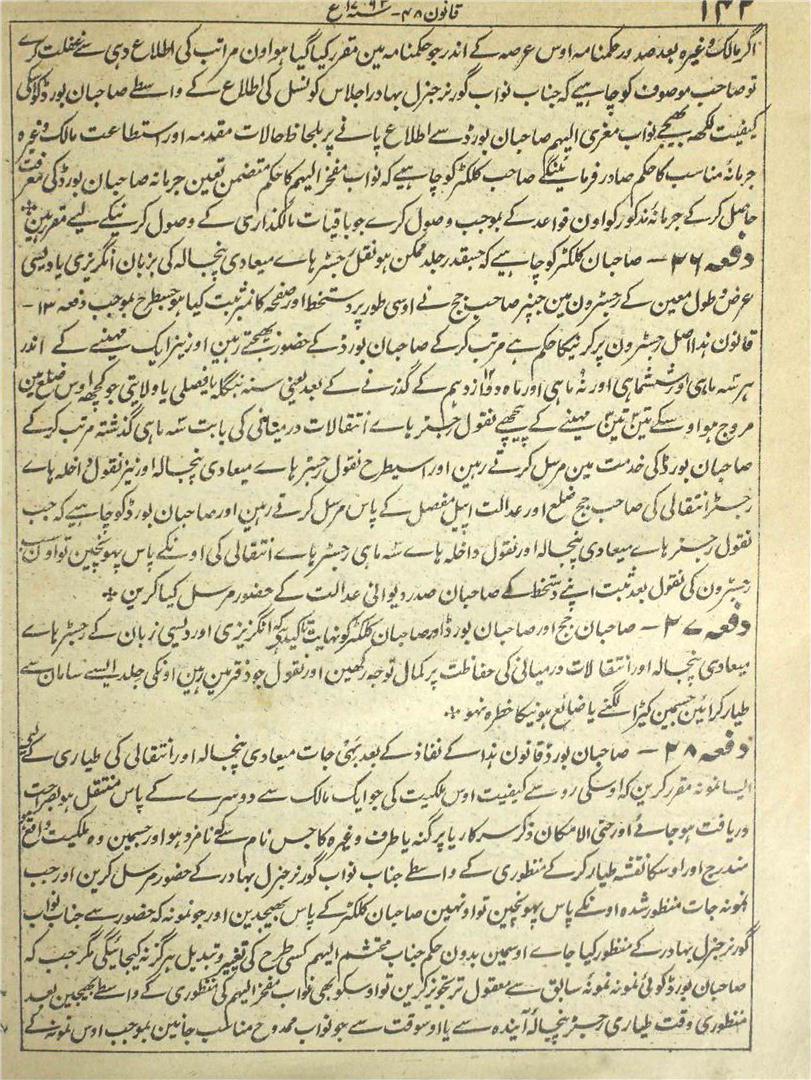 ۱۴۲
قانون ۴۸ – سنہ ۱۷۹۳ع
اگر مالک وغیرہ بعد صدور حکمنامہ اوس عرصہ کے اندر جو حکمنامہ مین مقرر کیا گیا ہو اون مراتب کی اطلاع دہی سے غفلت کرے
تو صاحب موصوف کو چاہیے کہ جناب نواب گورنر جنرل بہادر اجلاس کونسل کی اطلاع کے واسطے صاحبان بورڈ کو اسکی
کیفیت لکھہ بھیجے نواب معزی الیہم صاحبان بورڈ سے اطلاع پانے پر بلحاظ حالات مقدمہ اور استطاعت مالک وغیرہ
جرمانۂ مناسب کا حکم صادر فرمائینگے صاحب کلکٹر کو چاہیے کہ نواب مفخر الیہم کا حکم متضمن تعین جرمانہ صاحبان بورڈ کی معرفت
حاصل کرکے جرمانۂ مذکور کو اون قواعد کے بموجب وصول کرے جو باقیات مالگذاری کے وصول کرنیکے لیے مقرر ہین *
دفعہ ۲۶ – صاحبان کلکٹر کو چاہیے کہ جسقدر جلد ممکن ہو نقل رجسٹر ہاے میعادی پنجسالہ کی بزبان انگریزی یا دیسی
عرض و طول معین کے رجسٹرون مین جنپر صاحب جج نے اوسی طور پر دستخط اور صفحہ کا نمبر ثبت کیا ہو جسطرح بموجب دفعہ ۱۳ –
قانون ہذا اصل رجسٹرون پر کرنیکا حکم ہے مرتب کرکے صاحبان بورڈ کے حضور بھیجتے رہین اور نیز ایک مہینے کے اندر
ہر سہ ماہی اور ششماہی اور نہ ماہی اور ماہ دوازدہم کے گذرنے کے بعد یعنی سنہ بنگلہ یا فصلی یا ولایتی جو کچھہ اوس ضلع مین
مروج ہو اوسکے تین تین مہینے کے پیچھے نقول رجسٹر ہاے انتقالات درمیانی کی بابت سہ ماہی گذشتہ مرتب کرکے
صاحبان بورڈ کی خدمت مین مرسل کرتے رہین اور اسیطرح نقول رجسٹر ہاے میعادی پنجسالہ اور نیز نقول داخلہ ہاے
رجسٹر انتقالی کی صاحب جج ضلع اور عدالت اپیل مفصل کے پاس مرسل کرتے رہین اور صاحبان بورڈ کو چاہیے کہ جب
نقول رجسٹر ہاے میعادی پنجسالہ اور نقول داخلہ ہاے سہ ماہی رجسٹر ہاے انتقالی کی اونکے پاس پہونچین تو اون سب
رجسٹرون کی نقول بعد ثبت اپنے دستخط کے صاحبان صدر دیوانی عدالت کے حضور مرسل کیا کرین *
دفعہ ۲۷ – صاحبان جج اور صاحبان بورڈ اور صاحبان کلکٹر کو نہایت تاکید ہے کہ انگریزی اور دیسی زبان کے رجسٹر ہاے
میعادی پنجسالہ اور انتقالات درمیانی کی حفاظت پر کمال توجہ رکھین اور نقول جو دفتر مین رہین اونکی جلد ایسے سامان سے
طیار کرائین جسمین کیڑا لگنے یا ضائع ہونیکا خطرہ نہو *
دفعہ ۲۸ – صاحبان بورڈ قانون ہذا کے نفاذ کے بعد بہی جات میعادی پنجسالہ اور انتقالی کی طیاری کے لیے
ایسا نمونہ مقرر کرین کہ اوسکی رو سے کیفیت اوس ملکیت کی جو ایک مالک سے دوسرے کے پاس منتقل ہو بصراحت
دریافت ہو جائے اور حتی الامکان ذکر سرکار یا پرگنہ یا طرف وغیرہ کا جس نام سے کہ نامزد ہو اور جسمین وہ ملکیت واقع ہو
مندرج اور اوسکا نقشہ طیار کرکے منظوری کے واسطے جناب نواب گورنر جنرل بہادر کے حضور مرسل کرین اور جب
نمونہ جات منظور شدہ اونکے پاس پہونچین تو اونہین صاحبان کلکٹر کے پاس بھیجدین اور جو نمونہ کہ حضور سے جناب نواب
گورنر جنرل بہادر کے منظور کیا جاے اوسمین بدون حکم جناب محتشم الیہم کسی طرح کی تغییر و تبدیل ہرگز نہ کیجائیگی مگر جب کہ
صاحبان بورڈ کوئی نمونہ نمونۂ سابق سے معقول تر تجویز کرین تو اوسکو بھی نواب مفخر الیہم کی منظوری کے واسطے بھیجین بعد
منظوری وقت طیاری رجسٹر پنجسالۂ آیندہ سے یا اوسوقت سے جو نواب ممدوح مناسب جانین بموجب اوس نمونہ کے